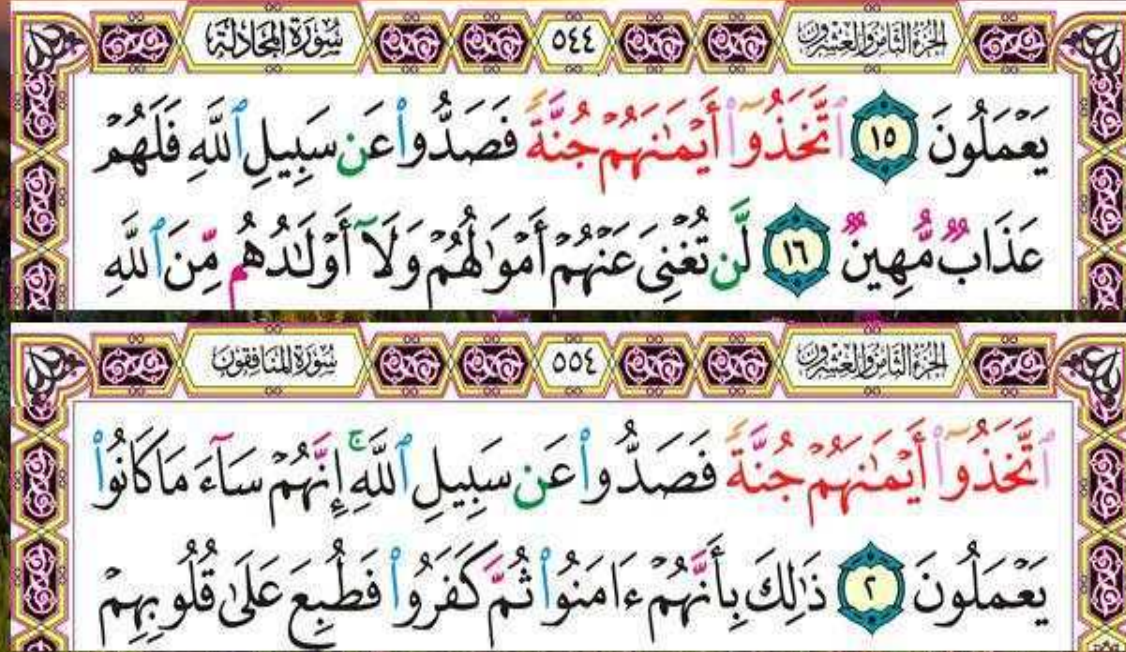 الجزء الثامن والعشرون ٥٤٤ سورة المجادلة
يَعۡمَلُونَ ١٥ ٱتَّخَذُوٓاْ أَيۡمَٰنَهُمۡ جُنَّةٗ فَصَدُّواْ عَن سَبِيلِ ٱللَّهِ فَلَهُمۡ
عَذَابٞ مُّهِينٞ ١٦ لَّن تُغۡنِيَ عَنۡهُمۡ أَمۡوَٰلُهُمۡ وَلَآ أَوۡلَٰدُهُم مِّنَ ٱللَّهِ
الجزء الثامن والعشرون ٥٥٤ سورة المنافقون
ٱتَّخَذُوٓاْ أَيۡمَٰنَهُمۡ جُنَّةٗ فَصَدُّواْ عَن سَبِيلِ ٱللَّهِۚ إِنَّهُمۡ سَآءَ مَا كَانُواْ
يَعۡمَلُونَ ٢ ذَٰلِكَ بِأَنَّهُمۡ ءَامَنُواْ ثُمَّ كَفَرُواْ فَطُبِعَ عَلَىٰ قُلُوبِهِمۡ